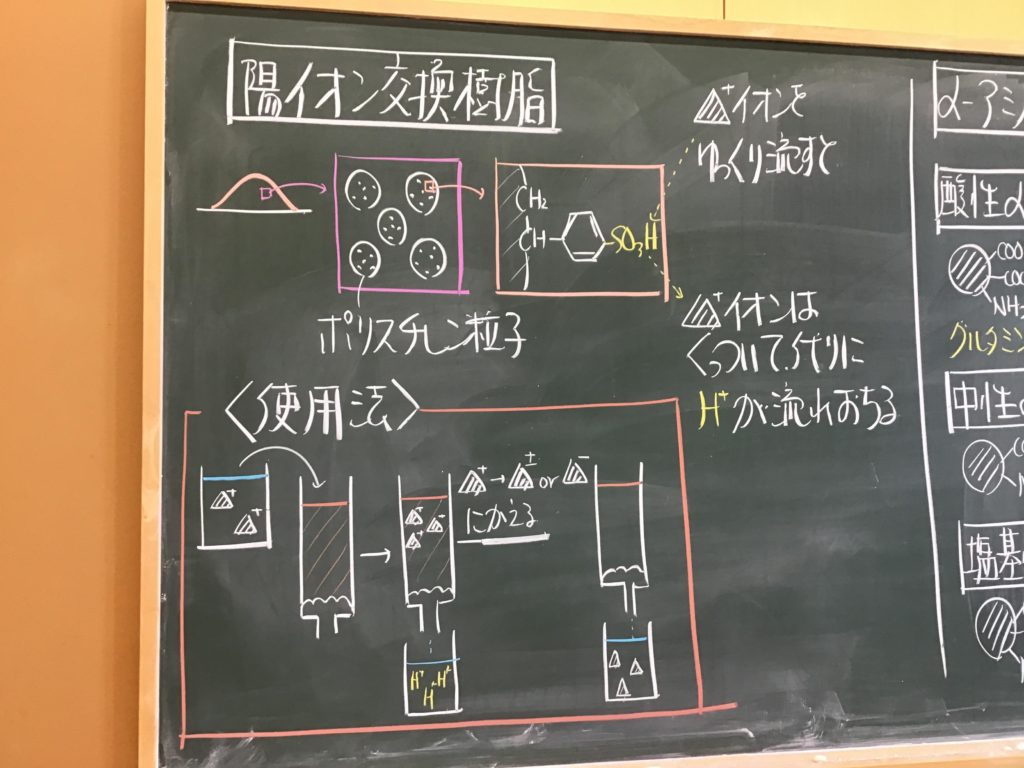 陽イオン交換樹脂
CH2
CH
SO3H
ポリスチレン粒子
+イオンを
ゆっくり流すと
+イオンは
くっついて、代りに
H+が流れおちる
〈使用法〉
+
+
+
+
+
+ → ± or −
にかえる
H+ H+ H+
α-アミ
酸性α
COO
COO
NH2
グルタミン
中性α
塩基